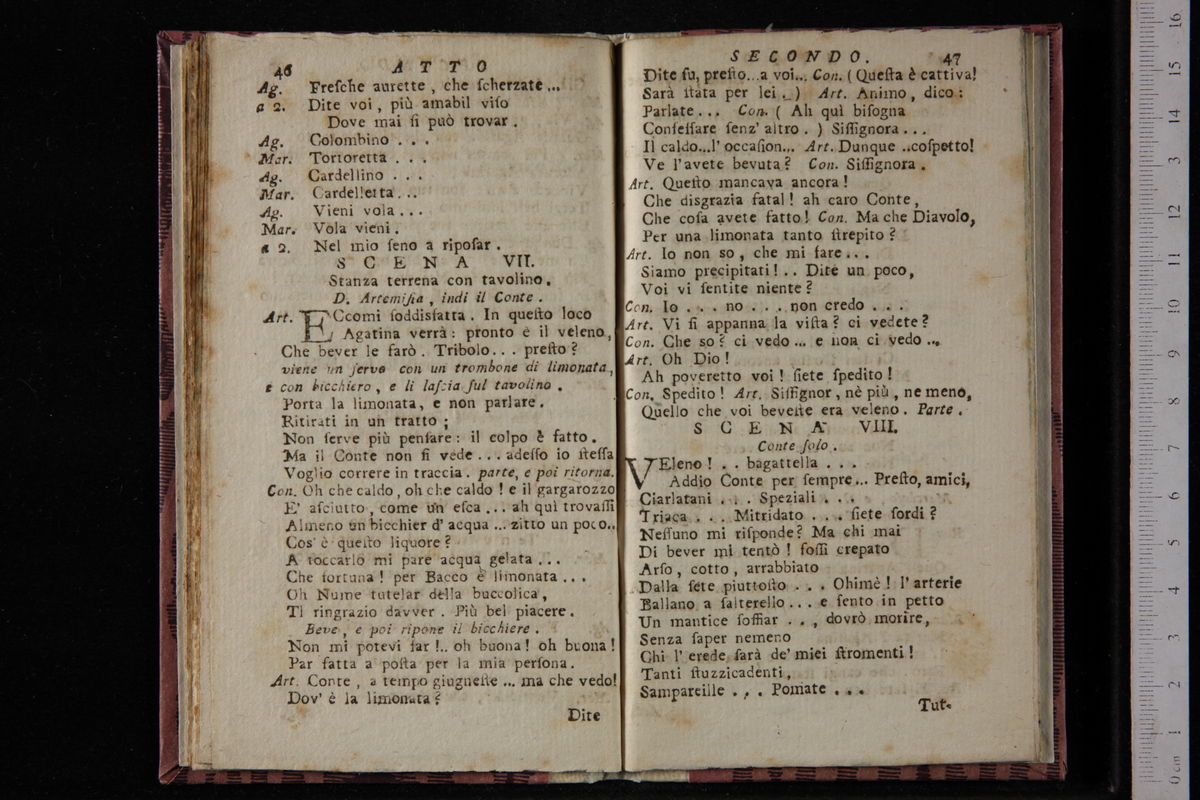 46 ATTO
Ag. Freſche aurette , che ſcherzate ...
a 2. Dite voi , più amabil viſo
Dove mai ſi può trovar .
Ag. Colombino . . .
Mar. Tortoretta . . .
Ag. Cardellino . . .
Mar. Cardelletta . . .
Ag. Vieni vola . . .
Mar. Vola vieni .
a 2. Nel mio ſeno a ripoſar .
SCENA VII.
Stanza terrena con tavolino .
D. Artemiſia , indi il Conte .
Art. ECcomi ſoddisfatta . In queſto loco
Agatina verrà : pronto è il veleno ,
Che bever le farò . Tribolo . . . preſto ?
viene un ſervo con un trombone di limonata ,
e con bicchiero , e li laſcia ſul tavolino .
Porta la limonata , e non parlare .
Ritirati in un tratto ;
Non ſerve più penſare : il colpo è fatto .
Ma il Conte non ſi vede . . . adeſſo io ſteſſa
Voglio correre in traccia . parte , e poi ritorna .
Con. Oh che caldo , oh che caldo ! e il gargarozzo
E' aſciutto , come un eſca . . . ah quì trovaſſi
Almeno un bicchier d' acqua ... zitto un poco..
Cos' è queſto liquore ?
A toccarlo mi pare acqua gelata . . .
Che fortuna ! per Bacco è limonata . . .
Oh Nume tutelar della buccolica ,
Ti ringrazio davver . Più bel piacere .
Beve , e poi ripone il bicchiere .
Non mi potevi far !.. oh buona ! oh buona !
Par fatta a poſta per la mia perſona .
Art. Conte , a tempo giugneſte ... ma che vedo!
Dov' è la limonata ?
Dite
SECONDO. 47
Dite ſu, preſto...a voi... Con. ( Queſta è cattiva!
Sarà ſtata per lei . ) Art. Animo , dico :
Parlate . . . Con. ( Ah quì biſogna
Confeſſare ſenz' altro . ) Siſſignora . . .
Il caldo...l' occaſion... Art. Dunque ..coſpetto!
Ve l'avete bevuta ? Con. Siſſignora .
Art. Queſto mancava ancora !
Che disgrazia fatal ! ah caro Conte ,
Che coſa avete fatto ! Con. Ma che Diavolo,
Per una limonata tanto ſtrepito ?
Art. Io non so , che mi fare . . .
Siamo precipitati ! . . Dite un poco,
Voi vi ſentite niente ?
Con. Io . . . no . . . non credo . . .
Art. Vi ſi appanna la viſta ? ci vedete ?
Con. Che so ? ci vedo ... e non ci vedo ...
Art. Oh Dio !
Ah poveretto voi ! ſiete ſpedito !
Con. Spedito ! Art. Siſſignor , nè più , ne meno,
Quello che voi beveſte era veleno . Parte .
SCENA VIII.
Conte ſolo .
VEleno ! . . bagattella . . .
Addio Conte per ſempre... Preſto, amici,
Ciarlatani . . . Speziali . . .
Triaca . . . Mitridato . . . ſiete ſordi ?
Neſſuno mi riſponde ? Ma chi mai
Di bever mi tentò ! foſſi crepato
Arſo , cotto , arrabbiato
Dalla ſete piuttoſto . . . Ohimè ! l' arterie
Ballano a ſalterello . . . e ſento in petto
Un mantice ſoffiar . . , dovrò morire,
Senza ſaper nemeno
Chi l' erede ſarà de' miei ſtromenti !
Tanti ſtuzzicadenti,
Sampareille . . . Pomate . . .
Tut-
0 cm 1 2 3 4 5 6 7 8 9 10 11 12 13 14 15 16